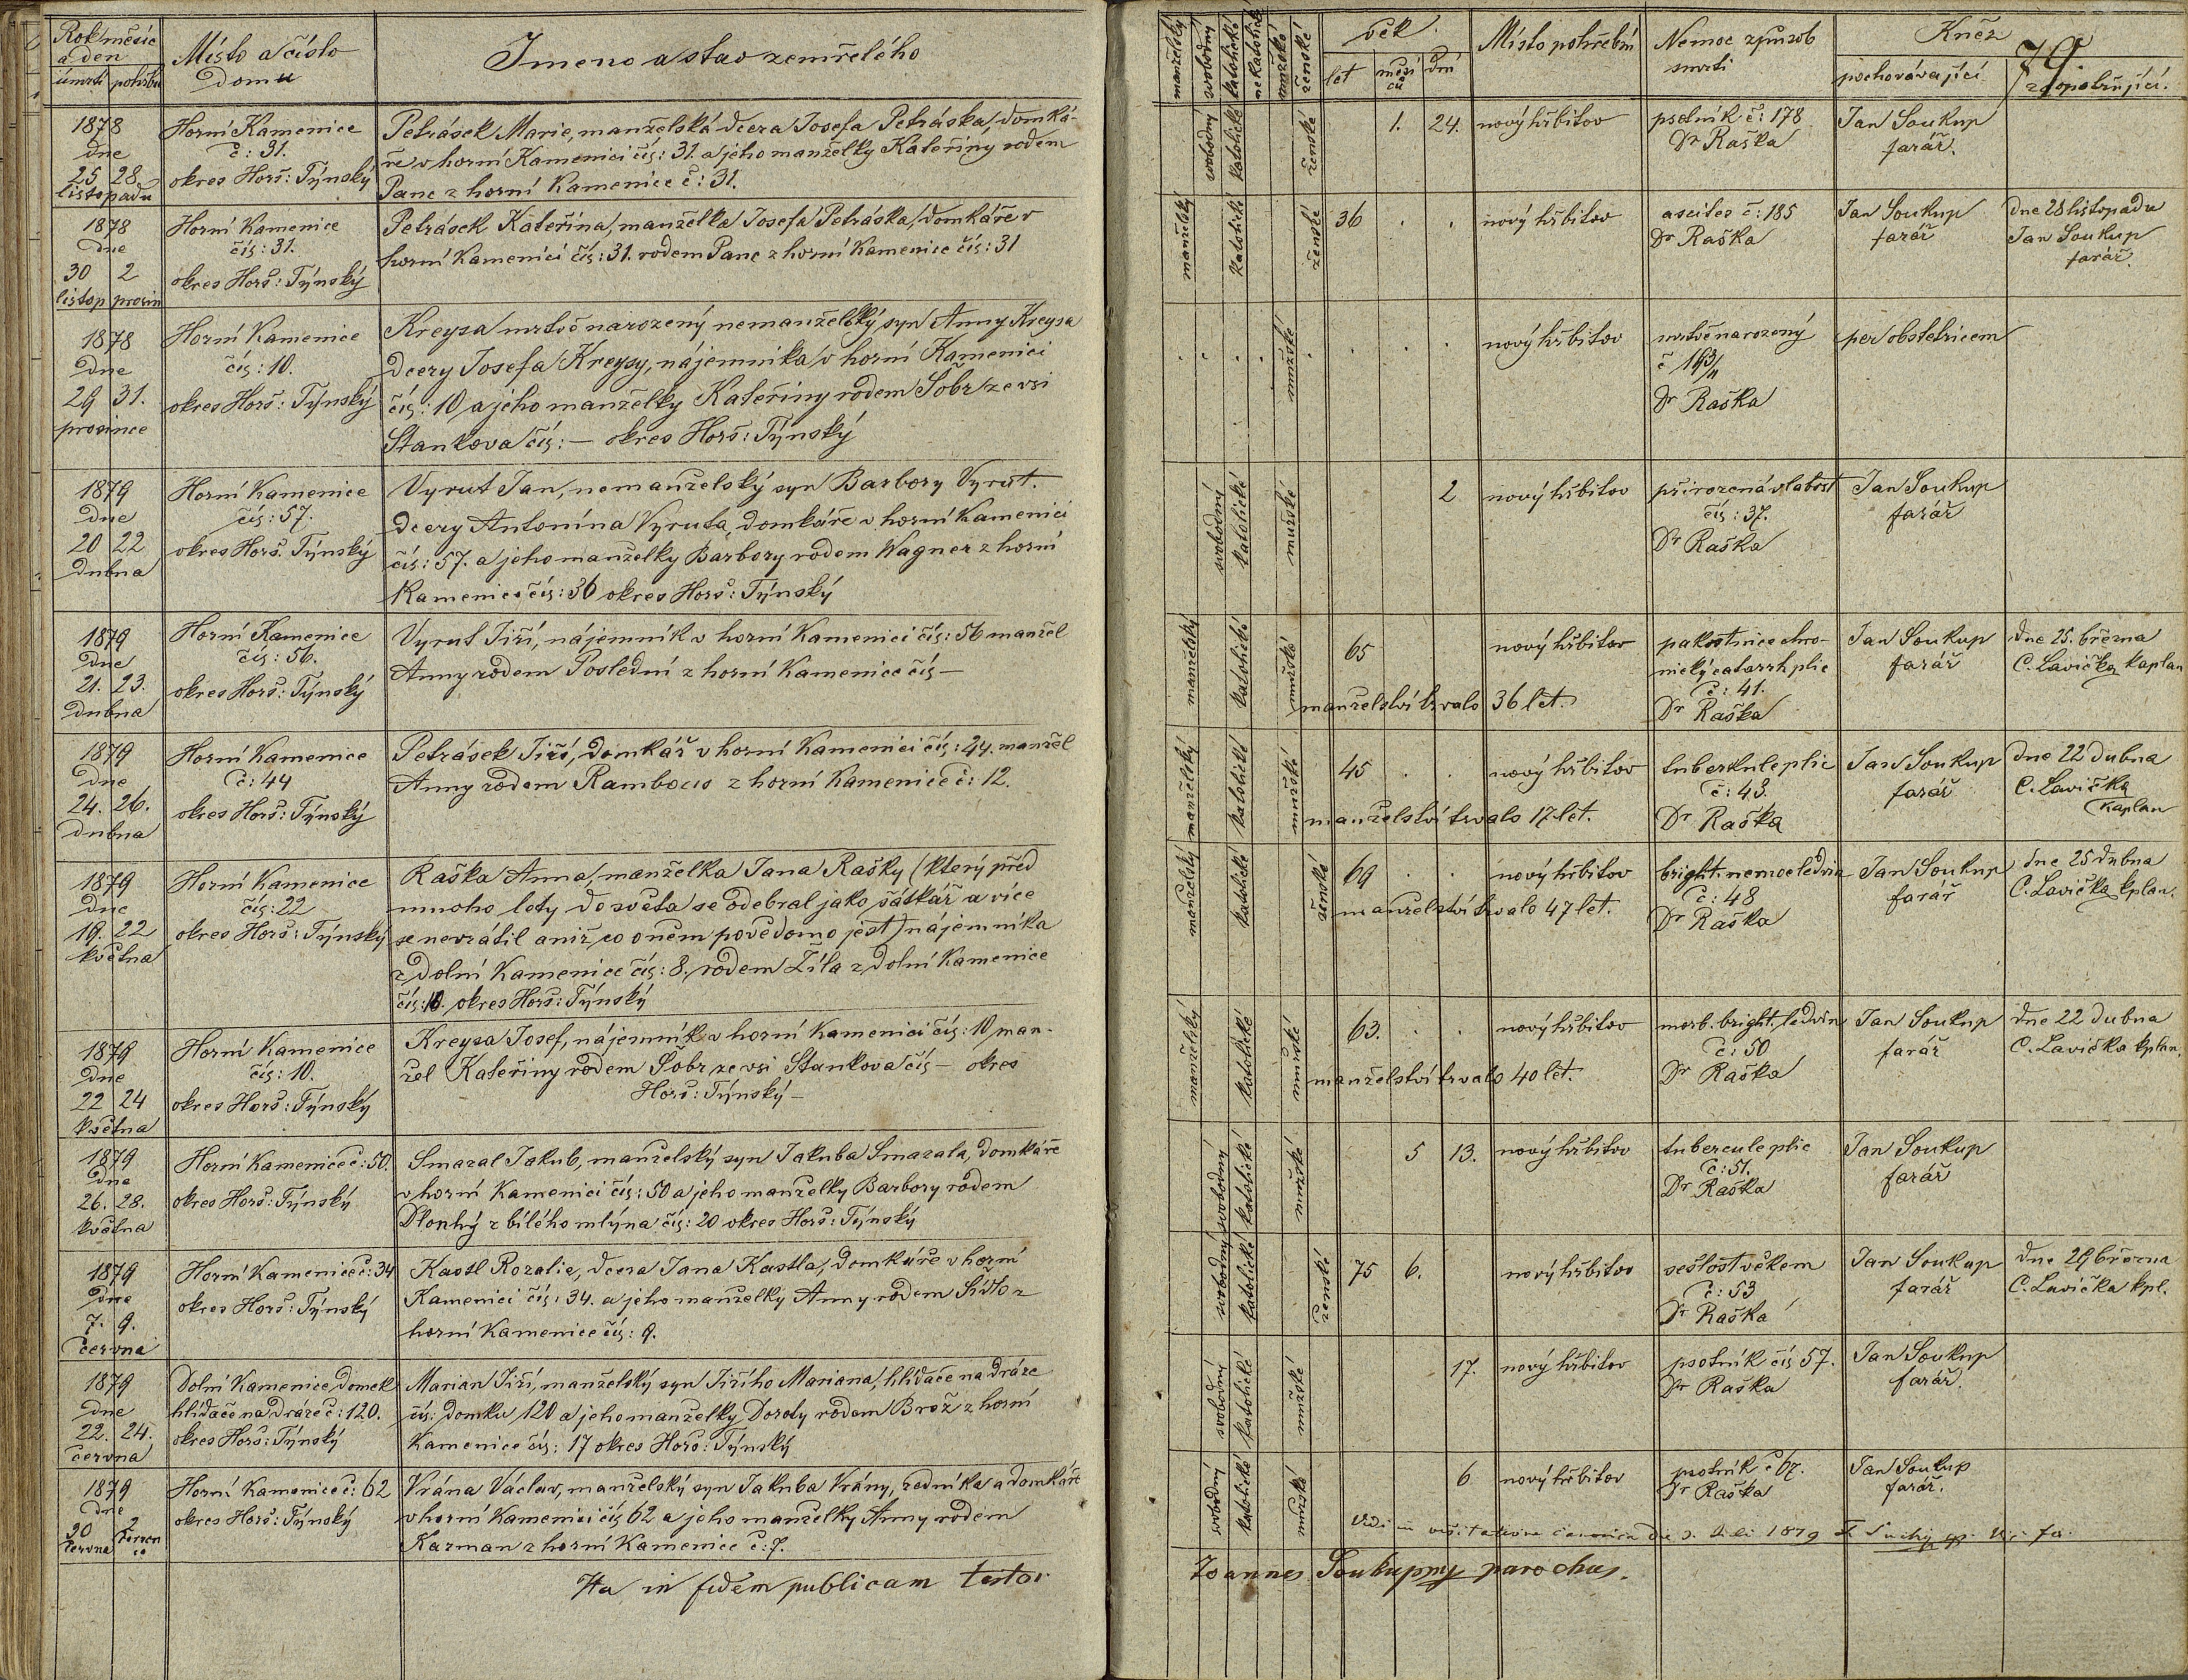 Rok měsíc
a den
úmrtí pohřbu
Místo a číslo
Domu
Jmeno a stav zemřelého
manželský
svobodný
katolické
nekatolické
mužské
ženské
věk
let
měsíců
dní
Místo pohřební
Nemoc způsob
smrti
Kněz
79
pochovávající
zaopatřující.
1878
dne
25 28
listopadu
Horní Kamenice
č: 31.
okres Horš: Týnský
Petrásek Marie, manželská dcera Josefa Petráska, domká-
ře v horní Kamenici čís: 31. a jeho manželky Kateřiny rodem
Panc z horní Kamenice č: 31.
svobodný
katolické
ženské
1. 24. nový hřbitov
psotník č: 178
Dr Raška
Jan Soukup
farář.
1878
dne
30 2
listop prosin
Horní Kamenice
čís: 31.
okres Horš: Týnský
Petrásek Kateřina, manželka Josefa Petráska, domkáře v
horní Kamenici čís: 31. rodem Panc z horní Kamenice čís: 31
manželský
katolické
ženské
36 . . nový hřbitov
ascites č: 185
Dr Raška
Jan Soukup
farář
dne 28 listopadu
Jan Soukup
farář.
1878
dne
29 31.
prosince
Horní Kamenice
čís: 10.
okres Horš: Týnský
Kreysa mrtvě narozený nemanželský syn Anny Kreysa
dcery Josefa Kreysy, nájemníka v horní Kamenici
čís: 10 a jeho manželky Kateřiny rodem Šobr ze vsi
Stankova čís: — okres Horš: Týnský
mužské
nový hřbitov
mrtvě narozený
Dr Raška
per obstetricem
1879
dne
20 22
dubna
Horní Kamenice
čís: 57.
okres Horš. Týnský
Vyrut Jan, nemanželský syn Barbory Vyrut.
dcery Antonína Vyruta, domkáře v horní Kamenici
čís: 57. a jeho manželky Barbory rodem Wagner z horní
Kamenice čís: 36 okres Horš: Týnský
svobodný
katolické
mužské
2 nový hřbitov
přirozená slabost
čís: 37.
Dr Raška
Jan Soukup
farář
1879
dne
21. 23.
dubna
Horní Kamenice
čís: 56.
okres Horš: Týnský
Vyrut Jiří, nájemník v horní Kamenici čís: 56 manžel
Anny rodem Poslední z horní Kamenice čís —
manželský
katolické
mužské
65 nový hřbitov
manželství trvalo 36 let.
pakostnice chro-
nický catarrh plic
č: 41.
Dr Raška
Jan Soukup
farář
dne 25. března
C. Lavička kaplan
1879
dne
24. 26.
dubna
Horní Kamenice
č: 44
okres Horš: Týnský
Petrásek Jiří, domkář v horní Kamenici čís: 44. manžel
Anny rodem Rambous z horní Kamenice č: 12.
manželský
katolické
mužské
45 . . nový hřbitov
manželství trvalo 17 let.
tuberkule plic
č: 43.
Dr Raška
Jan Soukup
farář
dne 22 dubna
C. Lavička
kaplan
1879
dne
19. 22
května
Horní Kamenice
čís: 22
okres Horš: Týnský
Raška Anna, manželka Jana Rašky (který před
mnoho lety do světa se odebral jako šátkář a více
se nevrátil aniž co o něm povědomo jest) nájemníka
z dolní Kamenice čís: 8. rodem Žíla z dolní Kamenice
čís: 10. okres Horš: Týnský
manželský
katolické
ženské
69 . . nový hřbitov
manželství trvalo 47 let.
bright. nemoc ledvin
č: 48
Dr Raška
Jan Soukup
farář
dne 25 dubna
C. Lavička kplan.
1879
dne
22 24
května
Horní Kamenice
čís: 10.
okres Horš: Týnský
Kreysa Josef, nájemník v horní Kamenici čís: 10, man-
žel Kateřiny rodem Šobr ze vsi Stankova čís — okres
Horš: Týnský —
manželský
katolické
mužské
63. . . nový hřbitov
manželství trvalo 40 let.
morb. bright. ledvin
č: 50
Dr Raška
Jan Soukup
farář
dne 22 dubna
C. Lavička kplan.
1879
dne
26. 28.
května
Horní Kamenice č: 50.
okres Horš: Týnský
Smazal Jakub, manželský syn Jakuba Smazala, domkáře
v horní Kamenici čís: 50 a jeho manželky Barbory rodem
Dlouhý z bílého mlýna čís: 20 okres Horš: Týnský
svobodný
katolické
mužské
5 13. nový hřbitov
tubercule plic
č: 51.
Dr Raška
Jan Soukup
farář
1879
dne
7. 9.
června
Horní Kamenice č: 34
okres Horš: Týnský
Kastl Rozalie, dcera Jana Kastla, domkáře v horní
Kamenici čís: 34. a jeho manželky Anny rodem Sídlo z
horní Kamenice čís: 9.
svobodný
katolické
ženské
75 6. nový hřbitov
sešlost věkem
č: 53
Dr Raška
Jan Soukup
farář
dne 29 března
C. Lavička kpl.
1879
dne
22. 24.
června
Dolní Kamenice, domek
hlídače na dráze č: 120.
okres Horš: Týnský
Marian Jiří, manželský syn Jiřího Mariana, hlídače na dráze
čís: domku 120 a jeho manželky Doroty rodem Brož z horní
Kamenice čís: 17 okres Horš: Týnský
svobodný
katolické
mužské
17. nový hřbitov
psotník čís 57.
Dr Raška
Jan Soukup
farář.
1879
dne
30 2
června července
Horní Kamenice č: 62
okres Horš: Týnský
Vrána Václav, manželský syn Jakuba Vrány, zedníka a domkáře
v horní Kamenici čís 62 a jeho manželky Anny rodem
Karman z horní Kamenice č: 7.
svobodný
katolické
mužské
6 nový hřbitov
psotník č 67.
Dr Raška
Jan Soukup
farář.
Vidi in visitatione canonica 1879
Ita in fidem publicam testor
Joannes Soukup mp parochus.